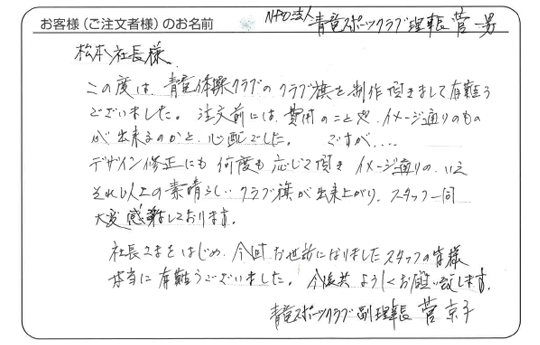 お客様（ご注文者様）のお名前
NPO法人 青竜スポーツクラブ理事長 菅 一男
松本社長様
この度は、青竜体操クラブのクラブ旗を制作頂きまして有難う
ございました。注文前には、費用のことや、イメージ通りのもの
が出来るのかと、心配でした。 ですが、...
デザイン修正にも何度も応じて頂きイメージ通りの、いえ
それ以上の素晴らしいクラブ旗が出来上がり、スタッフ一同
大変感謝しております。
社長さまをはじめ、今回お世話になりましたスタッフの皆様
本当に有難うございました。今後共よろしくお願い致します。
青竜スポーツクラブ副理事長 菅 京子